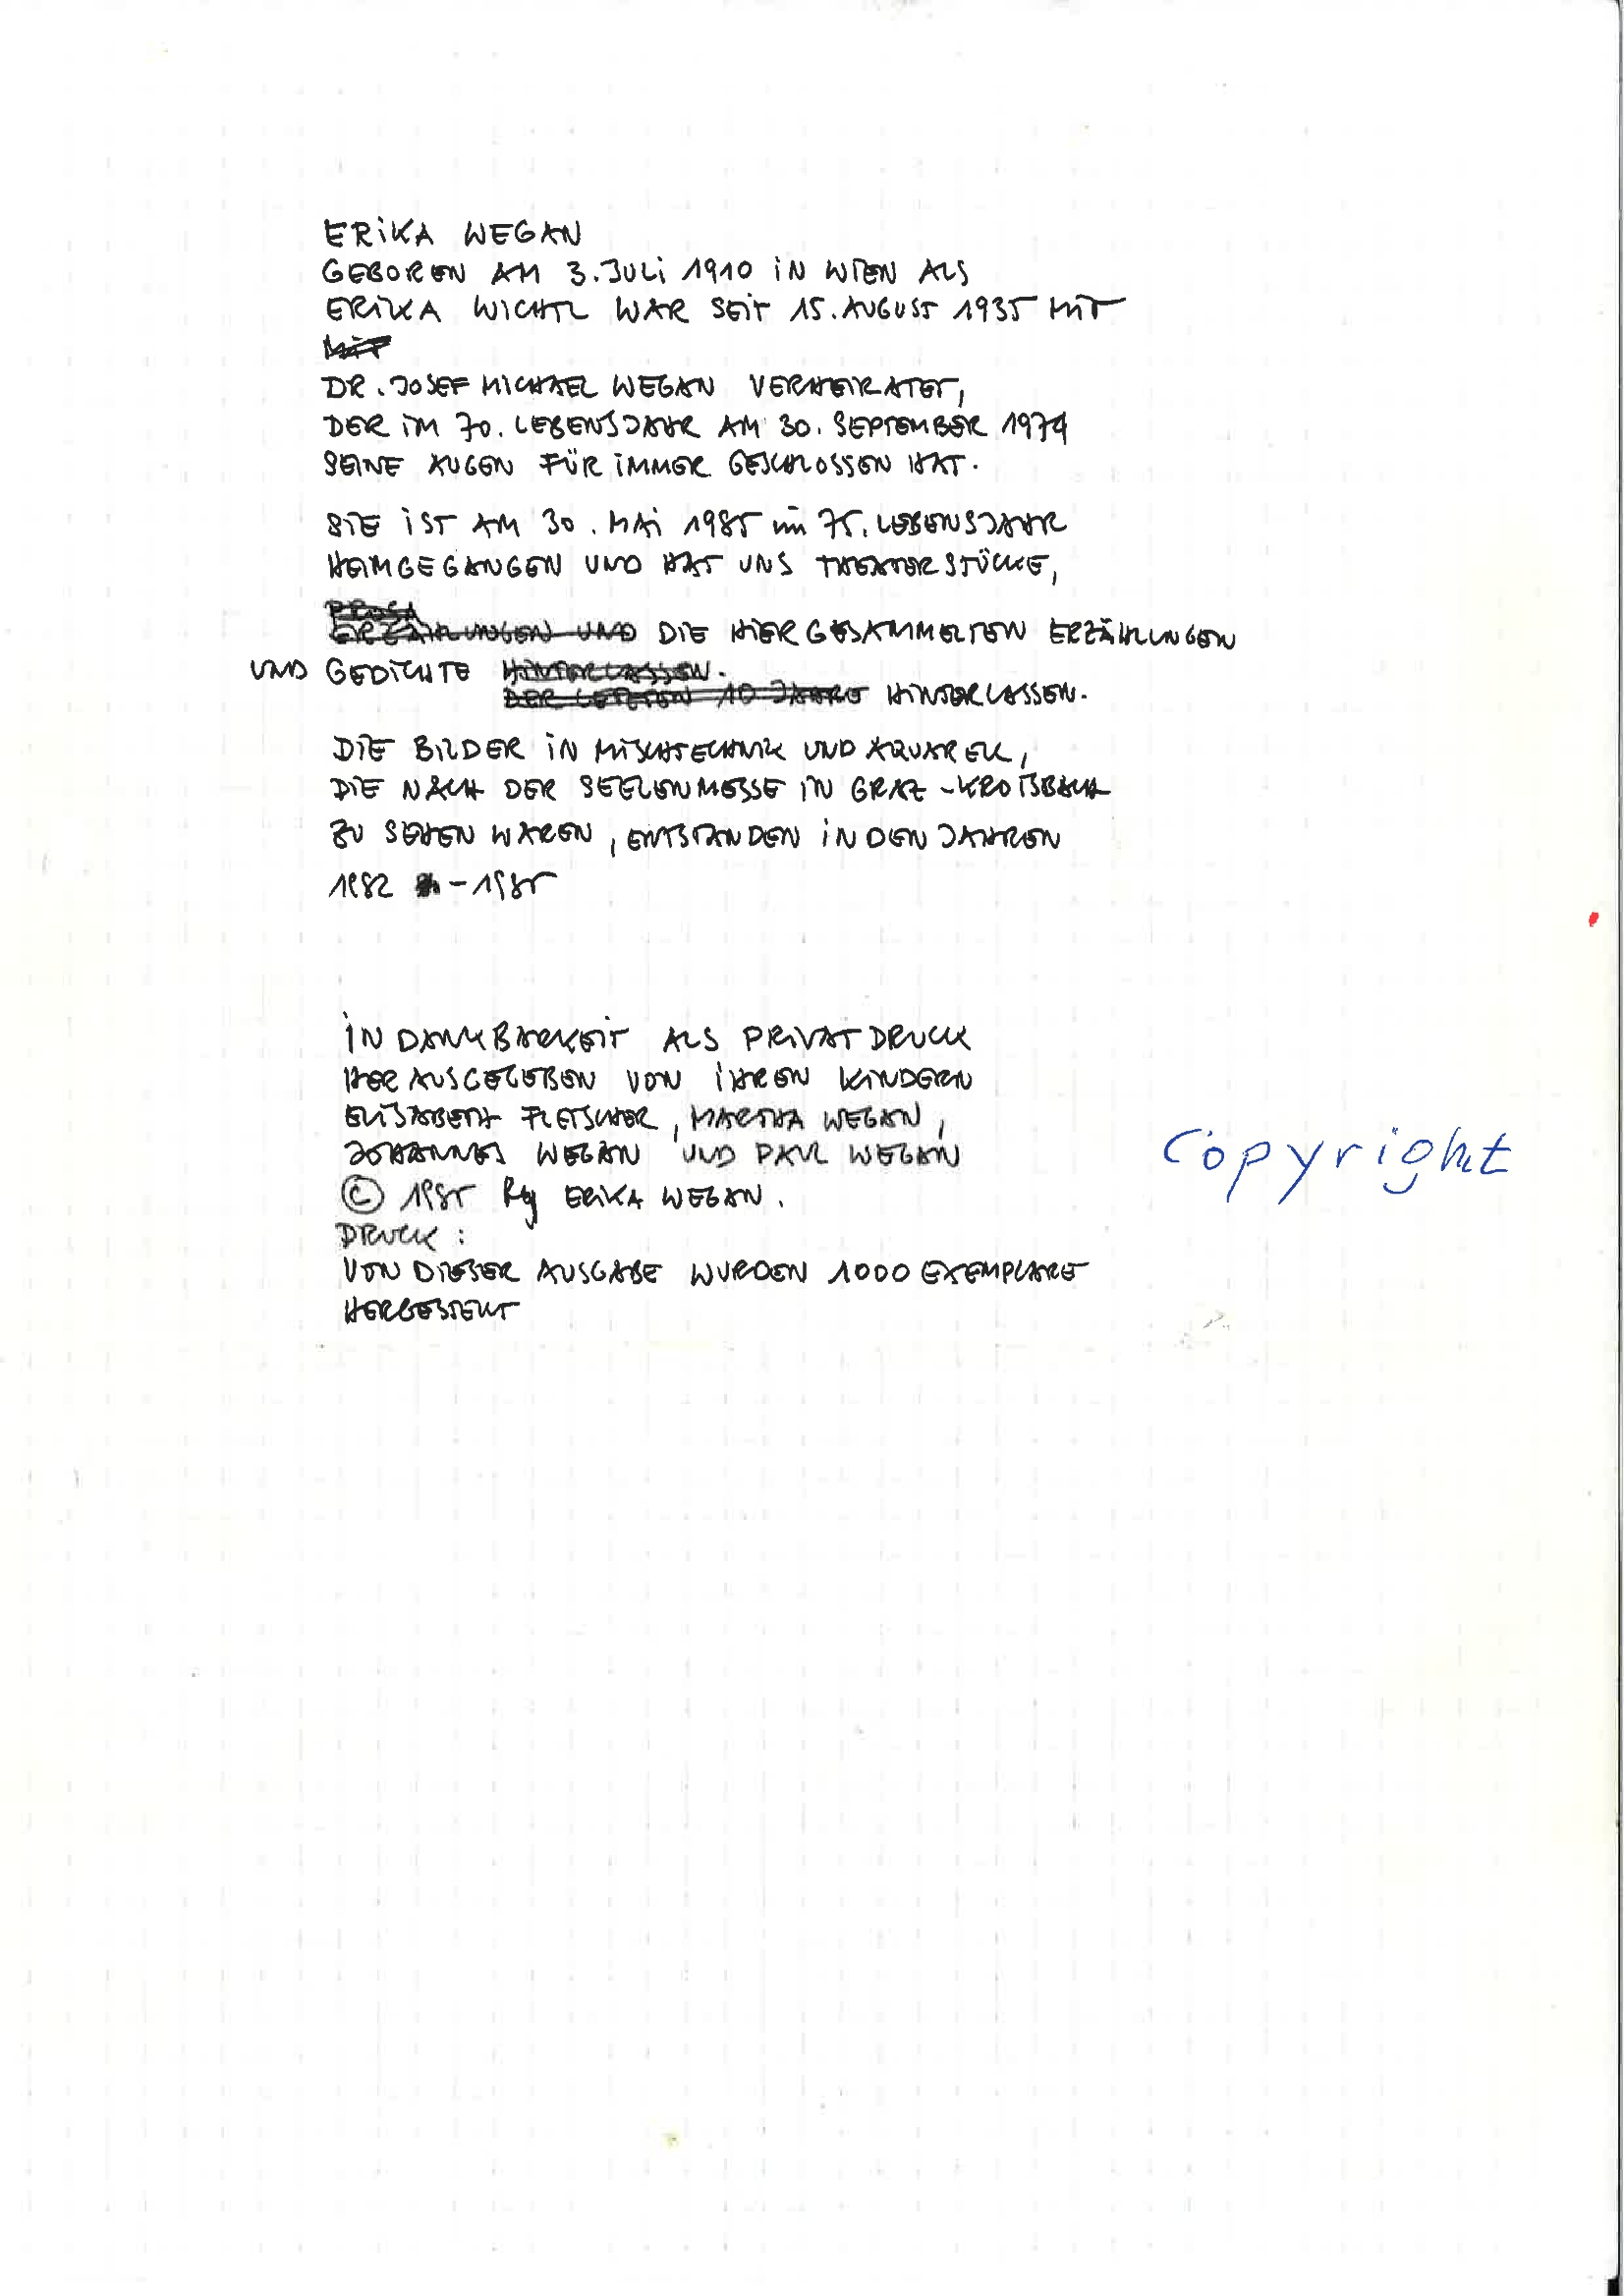 ERIKA WEGAN
GEBOREN AM 3. JULI 1910 IN WIEN ALS
ERIKA WICHTL WAR SEIT 15. AUGUST 1935 MIT
MIT
DR. JOSEF MICHAEL WEGAN VERHEIRATET,
DER IM 70. LEBENSJAHR AM 30. SEPTEMBER 1979
SEINE AUGEN FÜR IMMER GESCHLOSSEN HAT.
SIE IST AM 30. MAI 1985 im 75. LEBENSJAHR
HEIMGEGANGEN UND HAT UNS THEATERSTÜCKE,
PROSA
ERZÄHLUNGEN UND DIE HIER GESAMMELTEN ERZÄHLUNGEN
UND GEDICHTE HINTERLASSEN.
DER LETZTEN 10 JAHRE HINTERLASSEN.
DIE BILDER IN MISCHTECHNIK UND AQUARELL,
DIE NACH DER SEELENMESSE IN GRAZ-KROISBACH
ZU SEHEN WAREN, ENTSTANDEN IN DEN JAHREN
1982 - 1985
IN DANKBARKEIT ALS PRIVATDRUCK
HERAUSGEGEBEN VON IHREN KINDERN
ELISABETH FLEISCHER, MARTHA WEGAN,
JOHANNES WEGAN UND PAUL WEGAN
© 1985 By ERIKA WEGAN.
DRUCK:
VON DIESER AUSGABE WURDEN 1000 EXEMPLARE
HERGESTELLT
Copyright